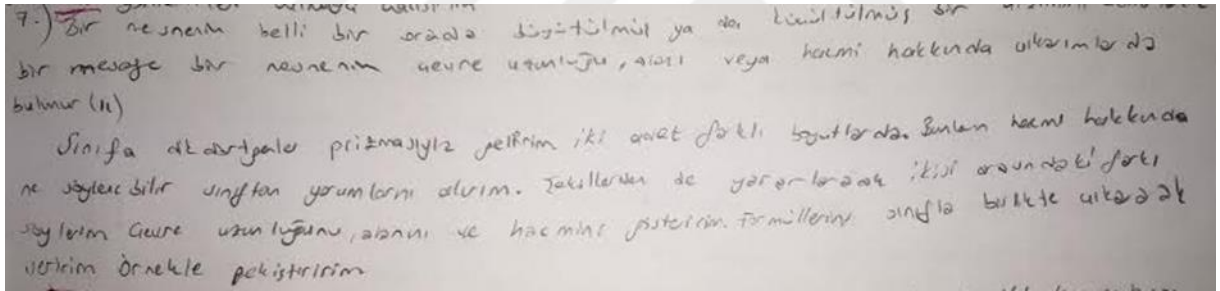 7.) Bir nesnenin belli bir orada büyütülmüş ya da küçültülmüş bir
bir mesafe bir nesnenin çevre uzunluğu, alanı veya hacmi hakkında çıkarımlarda
bulunur (11)
Sınıfa dikdörtgenler prizmasıyla gelirim iki adet farklı boyutlarda. Bunların hacmi hakkında
ne söylenebilir sınıftan yorumlarını alırım. Şekillerden de yararlanarak ikisi arasındaki farkı
söylerim Çevre uzunluğunu, alanını ve hacmini gösteririm. Formüllerini sınıfla birlikte çıkararak
veririm örnekle pekiştiririm